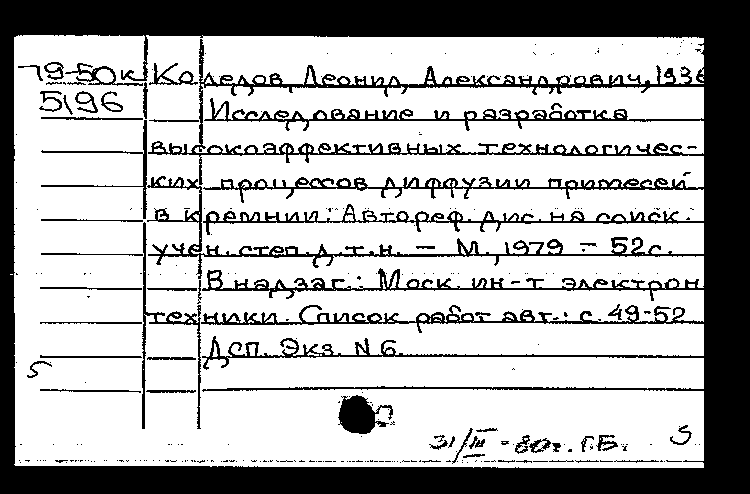 79-50к Коледов, Леонид, Александрович, 1936
5196 Исследование и разработка
высокоэффективных технологичес-
ких процессов диффузии примесей
в кремнии: Автореф. дис. на соиск.
учен. степ. д.т.н. - М., 1979 - 52с.
В надзаг.: Моск. ин-т электрон
техники. Список работ авт.: с. 49-52
ДСП. Экз. N 6.
5
31/III - 80г. Г.Б. 5